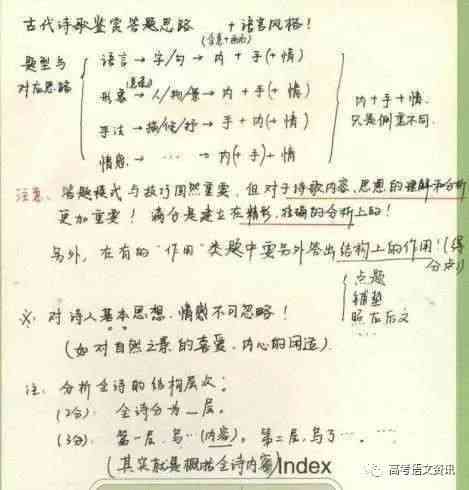 古代诗歌鉴赏答题思路 + 语言风格!
(含意+画面)
题型与
对应思路
语言 → 字/句 → 内 + 手(+情)
形象 → 人/物/景 → 内 + 手(+情)
手法 → 描/修/抒 → 手 + 内(+情)
情感 → …… → 内(+手)+情
内+手+情.
只是侧重不同.
注意: 答题模式与技巧固然重要, 但对于诗歌内容、思想的理解和分析
更加重要! 满分是建立在精彩,准确的分析上的!
另外, 在有的"作用"类题中要另外答出结构上的作用!(得
分点)
点题
铺垫
照应后文
……
※. 对诗人基本思想.情感不可忽略!
(如对自然之景的喜爱.内心的闲适)
注: 分析全诗的结构层次:
(2分): 全诗分为__层。
(3分): 第一层,写…(内容)。第二层,写了…. ….
(其实就是概括全诗内容) Index
高考语文资讯